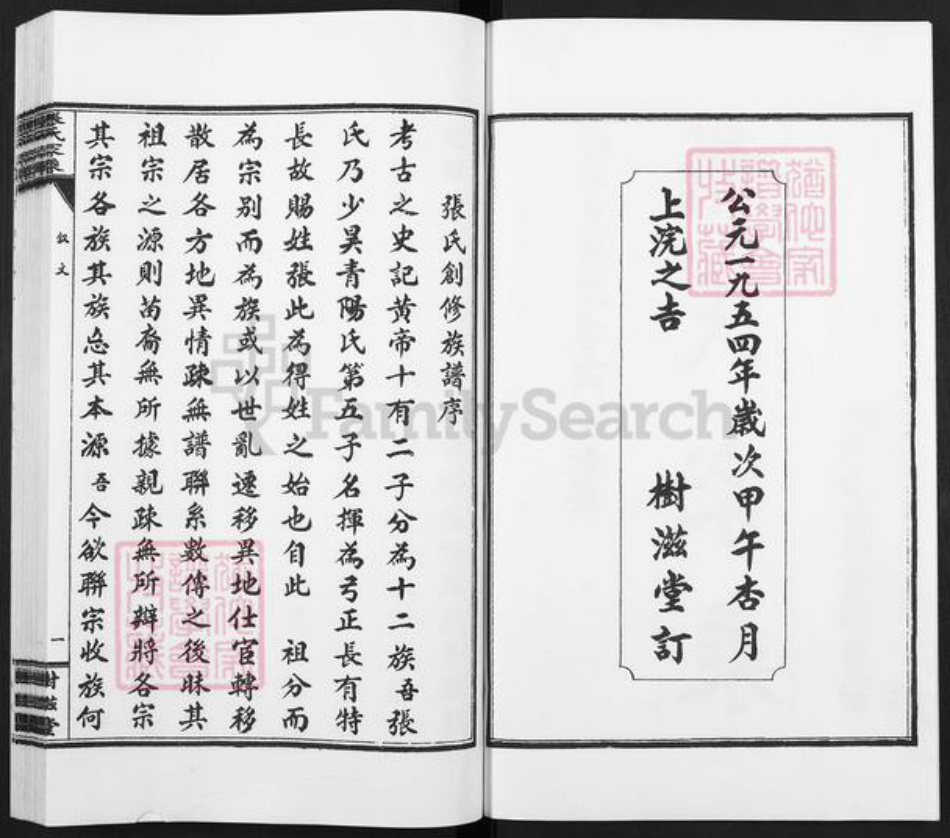 公元一九五四年歲次甲午杏月
上浣之吉　樹滋堂訂
張氏創修族譜序
考古之史記黃帝十有二子分為十二族吾張
氏乃少昊青陽氏第五子名揮為弓正長有特
長故賜姓張此為得姓之始也自此　祖分而
為宗別而為族或以世亂遷移異地仕宦轉移
散居各方地異情疎無譜聯系數傳之後昧其
祖宗之源則苗裔無所據親疎無所辯將各宗
其宗各族其族忘其本源吾今欲聯宗收族何
叙文
一
樹滋堂
FamilySearch